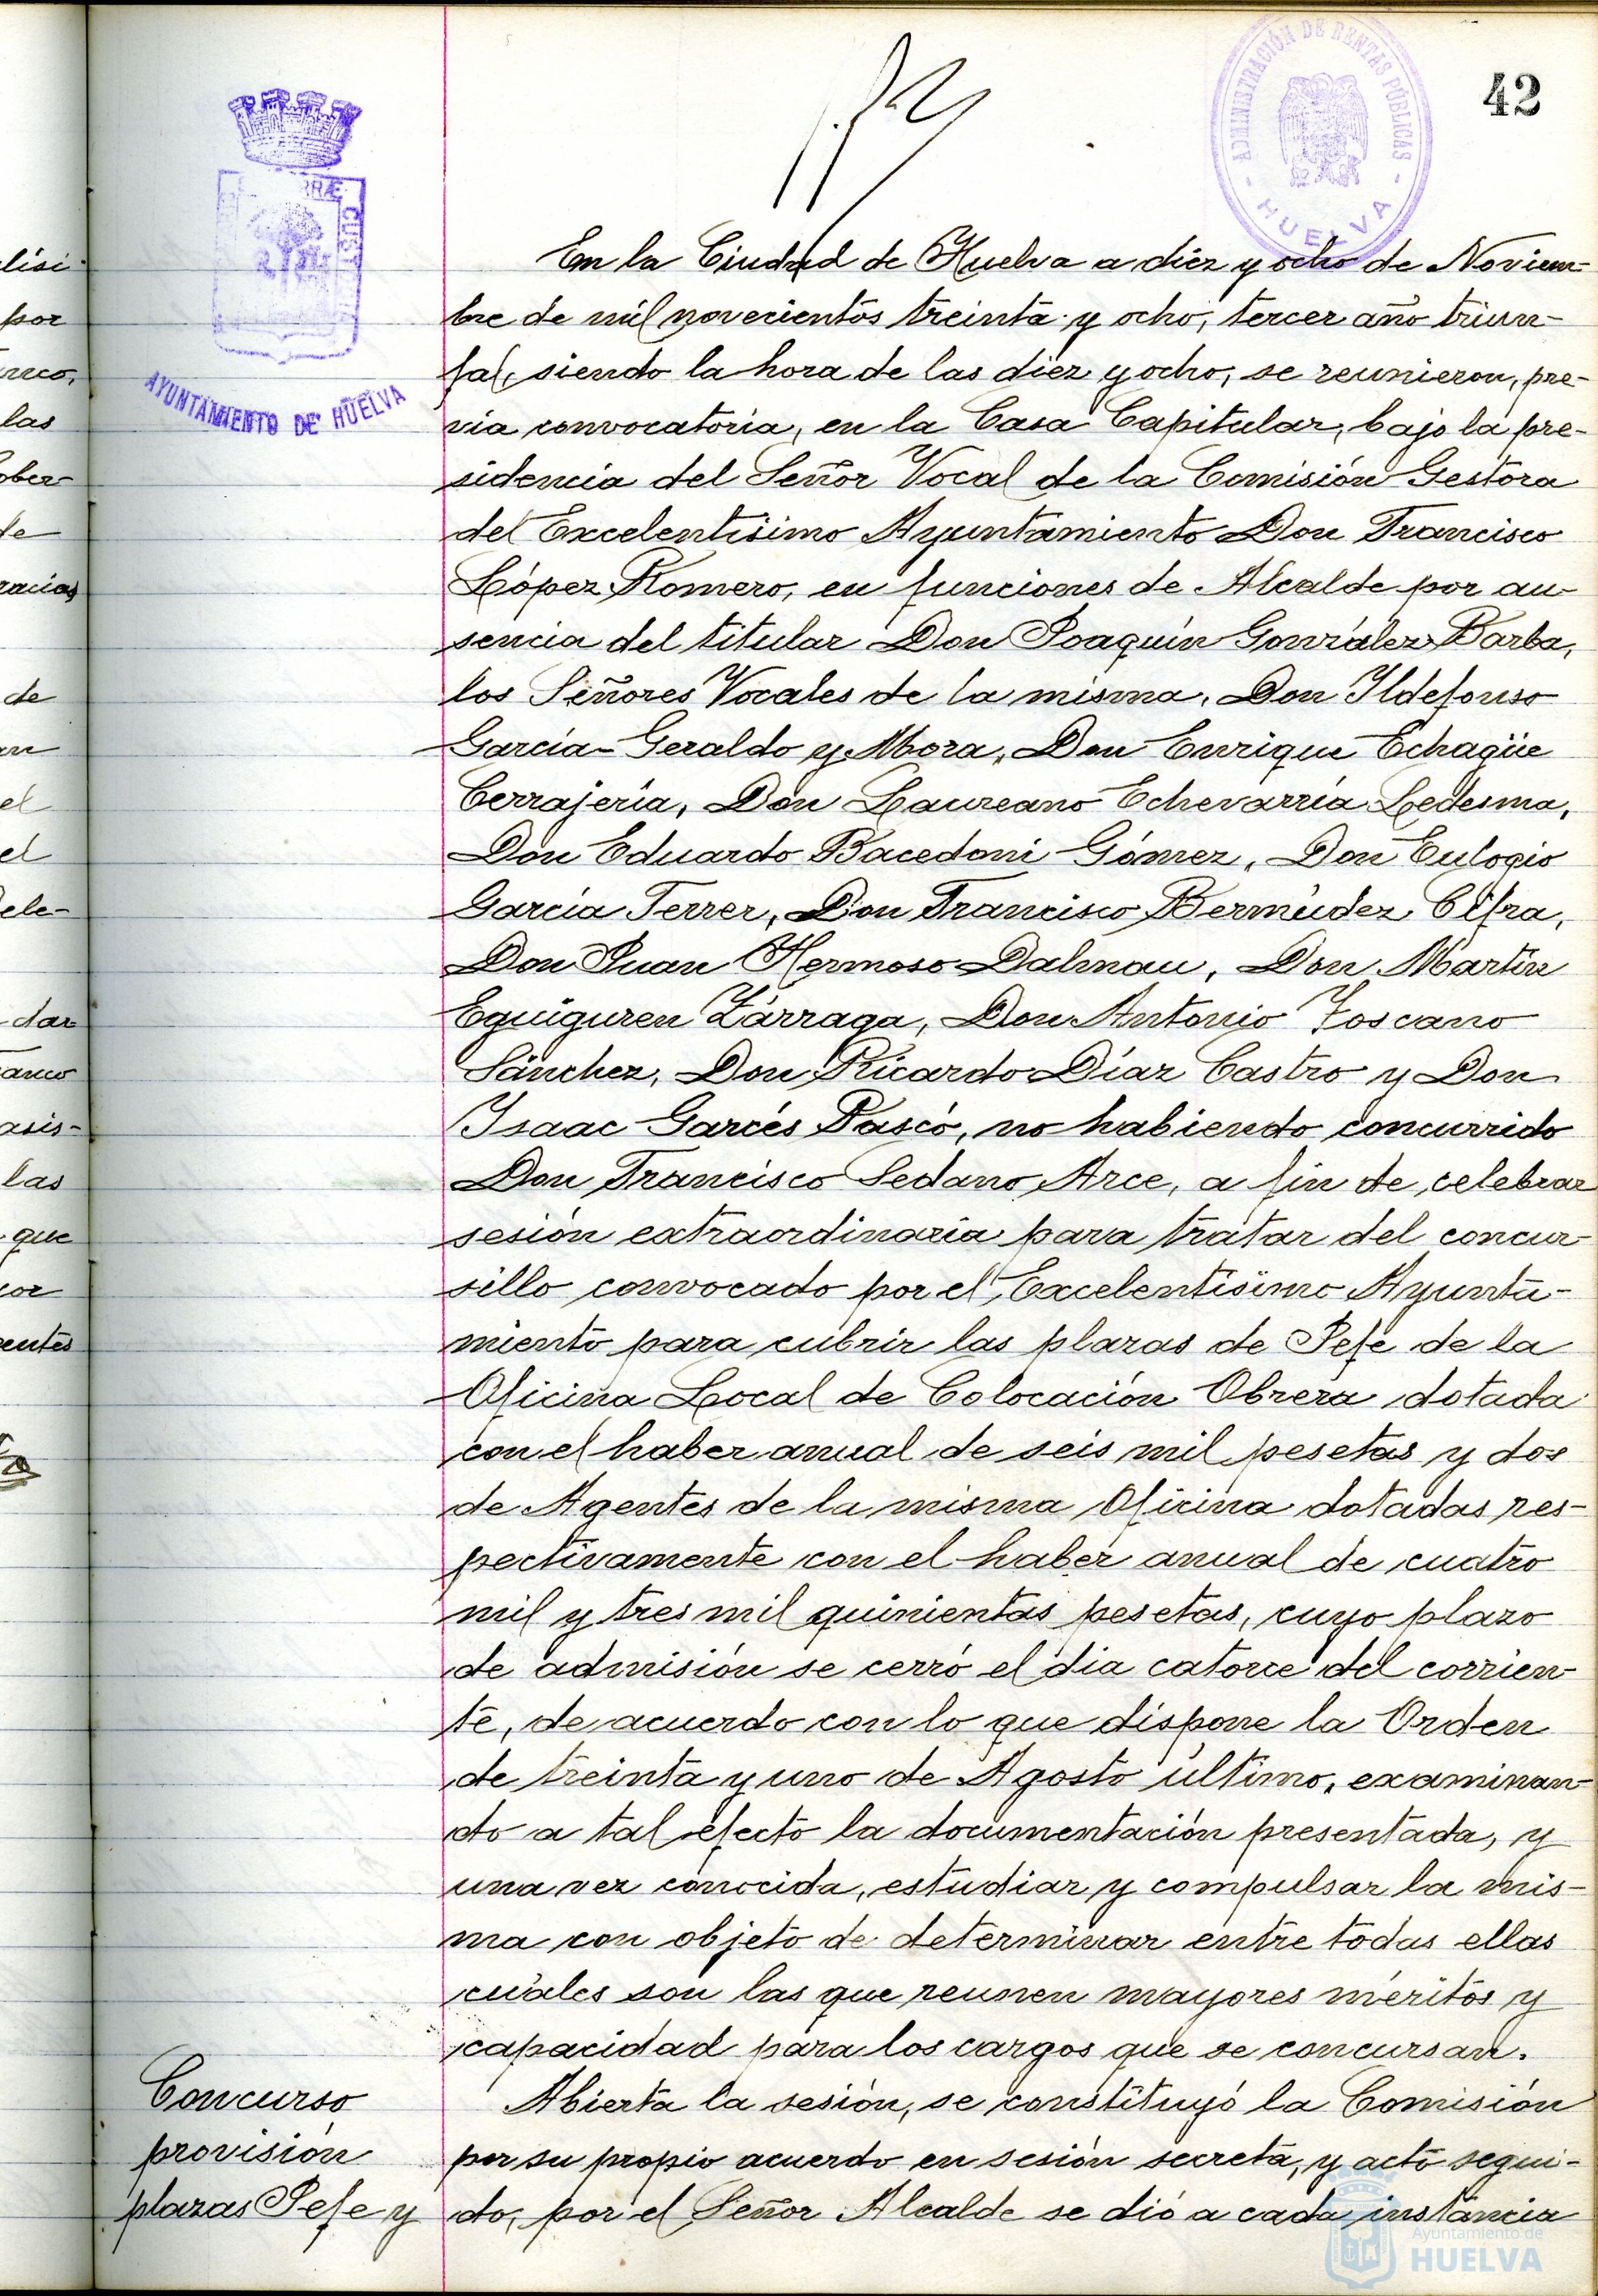 42
ADMINISTRACIÓN DE RENTAS PÚBLICAS
- HUELVA -
CUST
AYUNTAMIENTO DE HUELVA
En la Ciudad de Huelva a diez y ocho de Noviem-
bre de mil novecientos treinta y ocho, tercer año triun-
fal, siendo la hora de las diez y ocho, se reunieron, pre-
via convocatoria, en la Casa Capitular, bajo la pre-
sidencia del Señor Vocal de la Comisión Gestora
del Excelentísimo Ayuntamiento Don Francisco
López Romero, en funciones de Alcalde por au-
sencia del titular Don Joaquín González Barba,
los Señores Vocales de la misma, Don Ildefonso
García-Geraldo y Mora, Don Enrique Echagüe
Cerrajería, Don Laureano Echevarría Ledesma,
Don Eduardo Bacedoni Gómez, Don Eulogio
García Ferrer, Don Francisco Bermúdez Cifra,
Don Juan Hermoso Dalmau, Don Martín
Eguiguren Zárraga, Don Antonio Toscano
Sánchez, Don Ricardo Díaz Castro y Don
Isaac Garcés Pascó, no habiendo concurrido
Don Francisco Sedano Arce, a fin de celebrar
sesión extraordinaria para tratar del concur-
sillo convocado por el Excelentísimo Ayunta-
miento para cubrir las plazas de Jefe de la
Oficina Local de Colocación Obrera dotada
con el haber anual de seis mil pesetas y dos
de Agentes de la misma Oficina dotadas res-
pectivamente con el haber anual de cuatro
mil y tres mil quinientas pesetas, cuyo plazo
de admisión se cerró el dia catorce del corrien-
te, de acuerdo con lo que dispone la Orden
de treinta y uno de Agosto último, examinan-
do a tal efecto la documentación presentada, y
una vez conocida, estudiar y compulsar la mis-
ma con objeto de determinar entre todas ellas
cuáles son las que reunen mayores méritos y
capacidad para los cargos que se concursan.
Concurso
provisión
plazas Jefe y
Abierta la sesión, se constituyó la Comisión
por su propio acuerdo en sesión secreta, y acto segui-
do, por el Señor Alcalde se dió a cada instancia
Ayuntamiento de
HUELVA